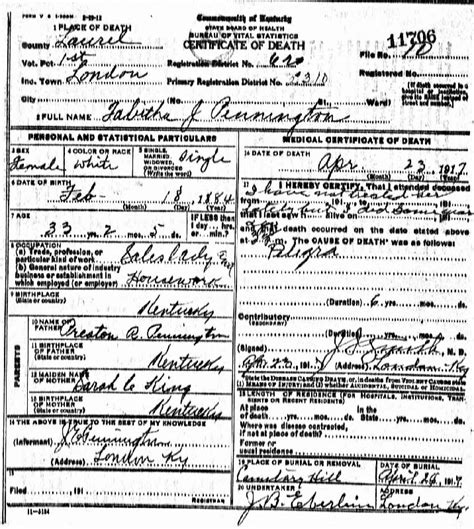 FORM V S 1-500M 2-29-12
Commonwealth of Kentucky
STATE BOARD OF HEALTH
BUREAU OF VITAL STATISTICS
CERTIFICATE OF DEATH
11706
1 PLACE OF DEATH
County Laurel
Vot. Pct 1st
Inc. Town London
City (No. St., Ward)
Registration District No. 620
Primary Registration District No. 2310
File No.
Registered No.
(If death occurred in a hospital or institution give its NAME instead of street and number.)
2 FULL NAME Tabitha J Pennington
PERSONAL AND STATISTICAL PARTICULARS
3 SEX Female
4 COLOR OR RACE White
5 SINGLE, MARRIED, WIDOWED, OR DIVORCED (Write the word) Single
6 DATE OF BIRTH
Feb 18, 1884
(Month) (Day) (Year)
7 AGE
33 yrs. 2 mos. 5 ds.
IF LESS than 1 day ... hrs. or ... min?
8 OCCUPATION
(a) Trade, profession, or particular kind of work Saleslady
(b) General nature of industry business or establishment in which employed (or employer) Housework
9 BIRTHPLACE
(State or country) Kentucky
PARENTS
10 NAME OF FATHER Preston R. Pennington
11 BIRTHPLACE OF FATHER (State or country) Kentucky
12 MAIDEN NAME OF MOTHER Sarah C King
13 BIRTHPLACE OF MOTHER (State or country) Kentucky
14 THE ABOVE IS TRUE TO THE BEST OF MY KNOWLEDGE
(Informant) Pennington
(Address) London Ky
15
Filed 191
REGISTRAR
11-3184
MEDICAL CERTIFICATE OF DEATH
16 DATE OF DEATH
Apr 23, 1917
(Month) (Day) (Year)
17 I HEREBY CERTIFY, That I attended deceased
I have
that I last saw alive on
and that death occurred on the date stated above
at m. The CAUSE OF DEATH* was as follows:
(Duration) 6 yrs. mos. ds.
Contributory
(SECONDARY)
(Duration) yrs. mos. ds.
(Signed) Smith, M. D.
191 (Address) London Ky
*State the DISEASE CAUSING DEATH, or, in deaths from VIOLENT CAUSES state (1) MEANS OF INJURY; and (2) whether ACCIDENTAL, SUICIDAL or HOMICIDAL.
18 LENGTH OF RESIDENCE (FOR HOSPITALS, INSTITUTIONS, TRANSIENTS OR RECENT RESIDENTS)
At place of death yrs. mos. ds. In the State yrs. mos. ds.
Where was disease contracted, if not at place of death?
Former or usual residence
19 PLACE OF BURIAL OR REMOVAL
Cemetery Hill
DATE OF BURIAL
April 26, 1917
20 UNDERTAKER
J.B. Eberlin
ADDRESS
London Ky